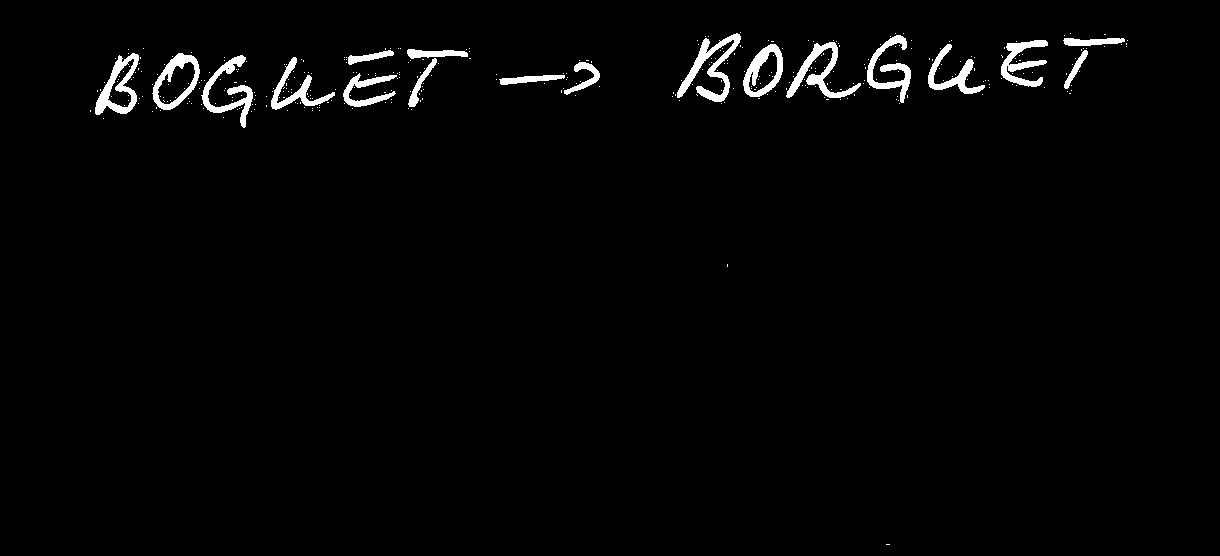 BOGUET → BORGUET